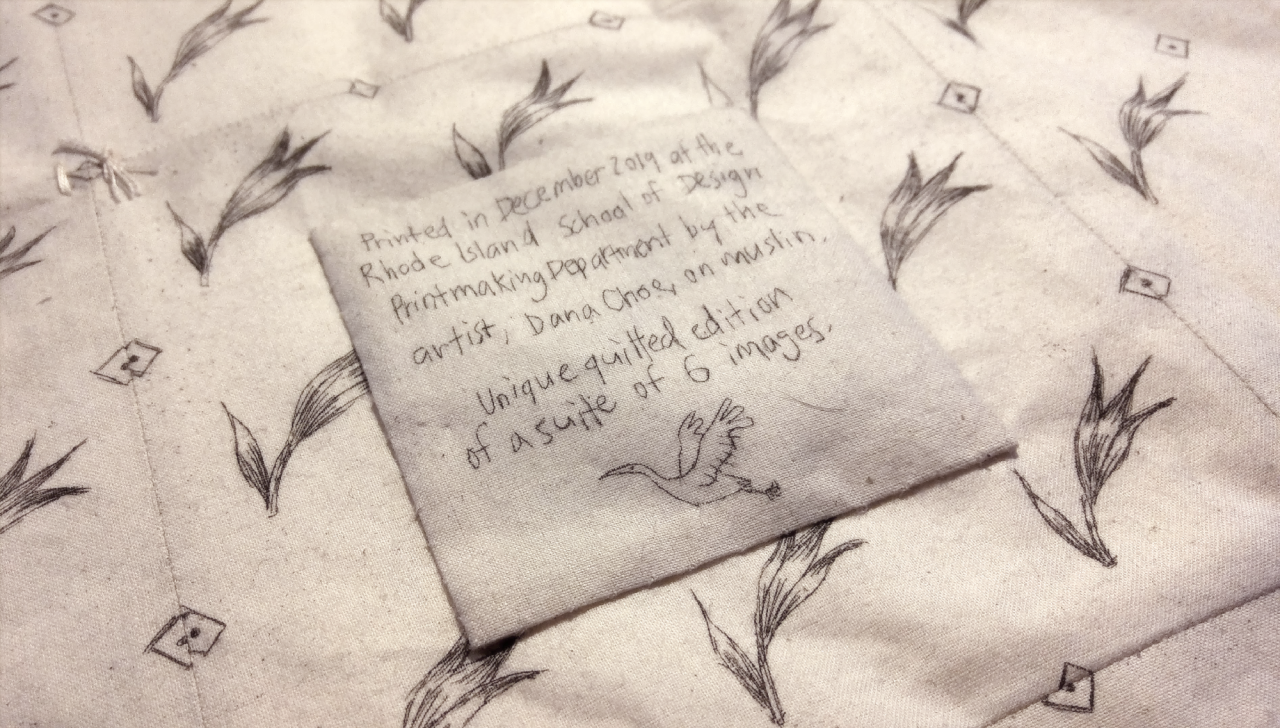 Printed in December 2019 at the
Rhode Island School of Design
Printmaking Department by the
artist, Dana Choe, on muslin.
Unique quilted edition
of a suite of 6 images.